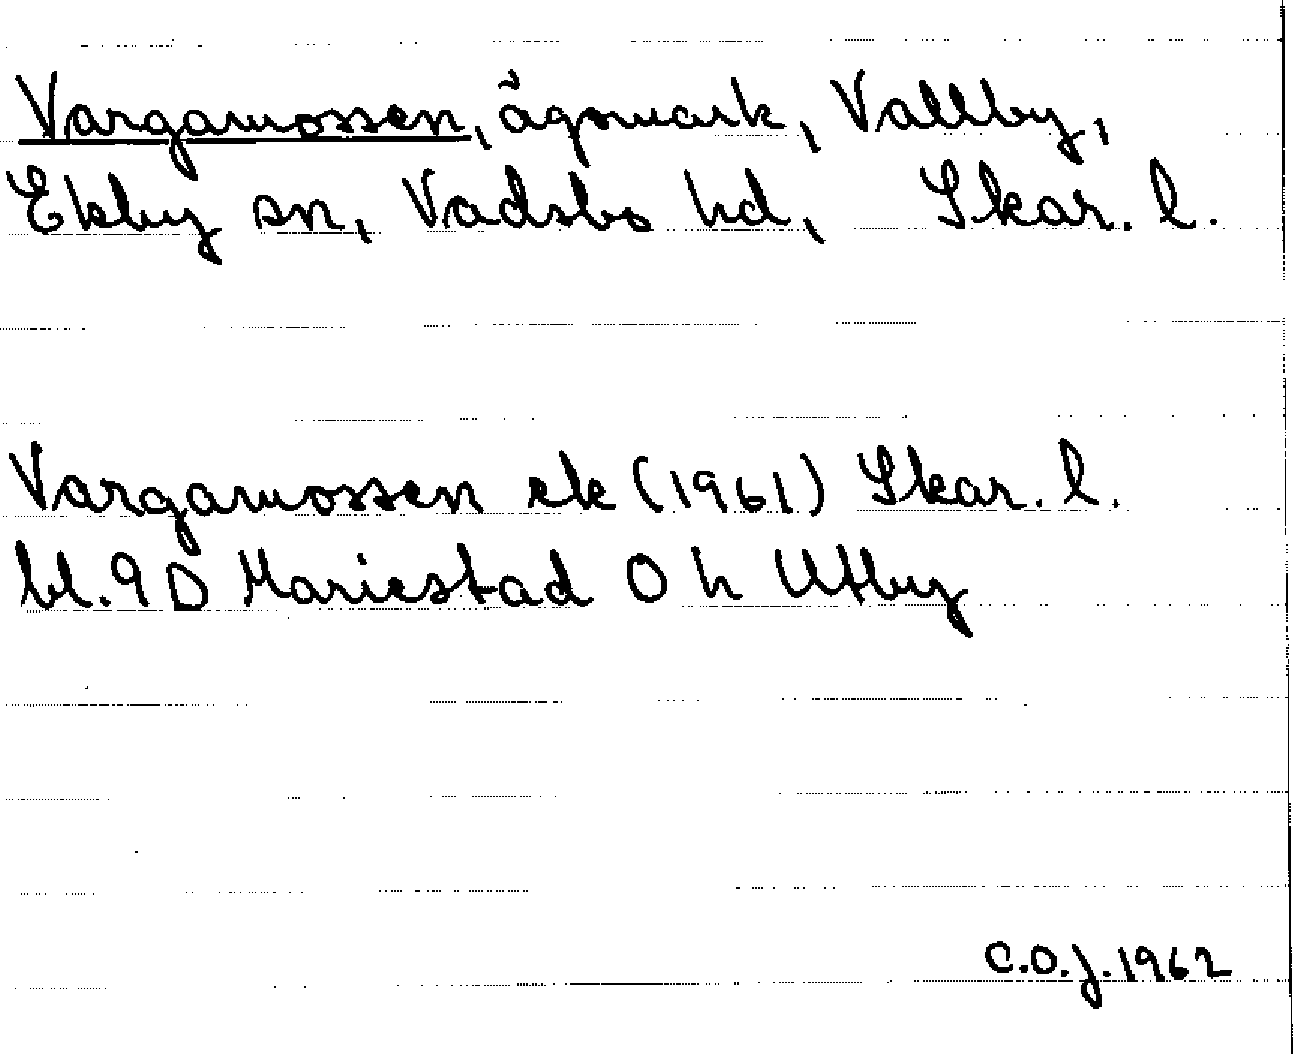 Vargamossen, ägomark, Vallby,
Ekby sn, Vadsbo hd, Skar. l.
Vargamossen ek (1961) Skar. l.
bl. 9 D Mariestad O h Utby
C.O.J. 1962